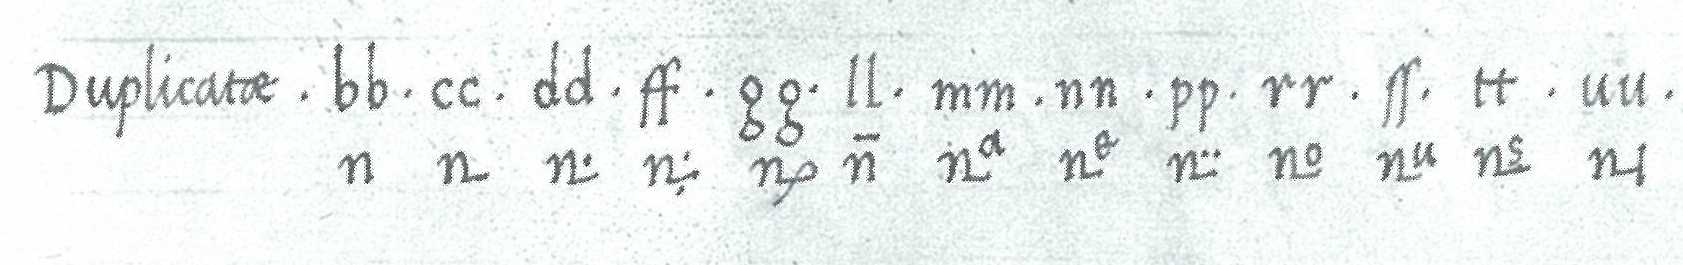 Duplicatæ . bb . cc . dd . ff . gg . ll . mm . nn . pp . rr . ſſ . tt . uu .
n n n n n n̄ nᵃ nᵉ n nᵒ nᵘ nˢ n